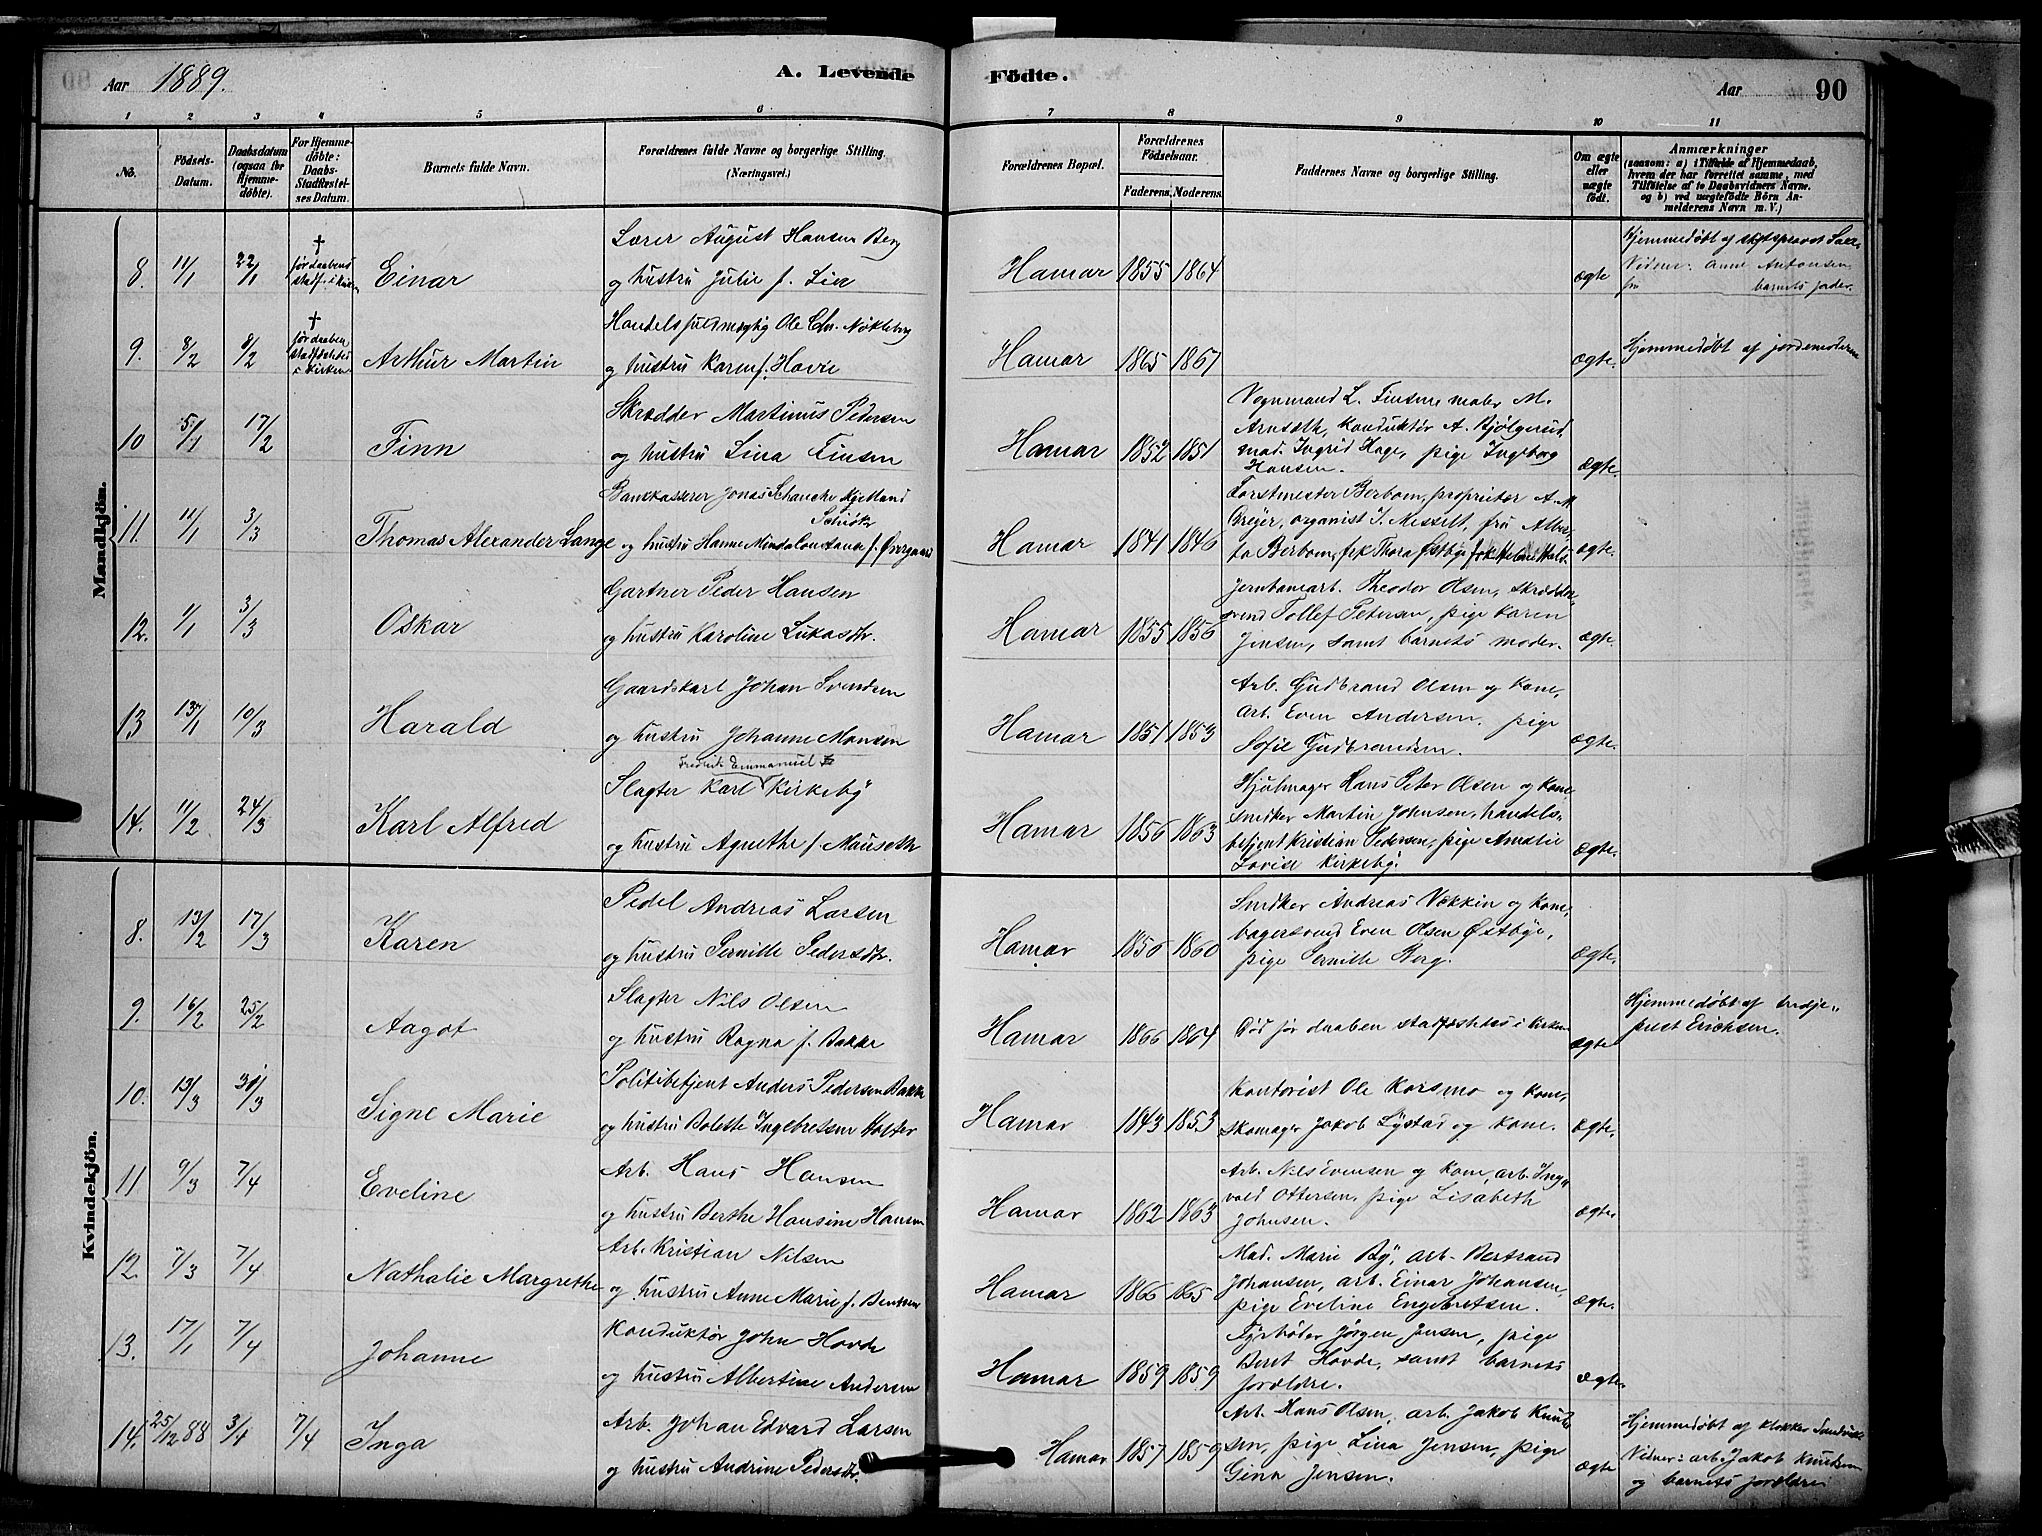 Aar 1889.
A. Levende Födte.
Aar 90
1 2 3 4 5 6 7 8 9 10 11
No.
Födsels-Datum.
Daabsdatum (ogsaa for Hjemme-döbte).
For Hjemme-döbte: Daabs-Stadfæstel-ses Datum.
Barnets fulde Navn.
Forældrenes fulde Navne og borgerlige Stilling. (Næringsvei.)
Forældrenes Bopæl.
Forældrenes Födselsaar.
Faderens. Moderens.
Faddernes Navne og borgerlige Stilling.
Om ægte eller uægte födt.
Anmærkninger
(saasom: a) i Tilfælde af Hjemmedaab, hvem der har forrettet samme, med Tilföielse af to Daabsvidners Navne. og b) ved uægtefödte Börn An-melderens Navn m. V.)
Mandkjön.
8. 11/1 22/1 † før daabens stadf. i kirken Einar
Lærer August Hansen Berg
og hustru Julie f. Lie
Hamar 1855 1864 ægte
Hjemmedøbt af
Vidner: Anne Antonsen
barnets fader.
9. 8/2 8/2 † før daaben stadfæstedes i kirken Arthur Martin
Handelsfuldmægtig Ole Chr. Nøkleberg
og hustru Karen f. Hovie
Hamar 1865 1867 ægte.
Hjemmedøbt af jordemoderen
10 5/1 17/2 Finn
Skrædder Martinus Pedersen
og hustru Lina Finsen
Hamar 1852 1851
Vognmand L. Finsen, maler M.
Arnseth, konduktør A. Bjølgerud,
mad. Ingrid Hage, pige Ingeborg
Hansen. ægte.
11. 11/1 3/3 Thomas Alexander Lange
Bankkasserer Jonas Schanche Kjelland
og hustru Hanne Minda Constance f. Øvergaard
Hamar 1841 1846
Forstmester Berbom, proprietær A. M
organist I. Messelt, fru Alber-
ta Berbom, frk Thora Østbye, frk
ægte.
12. 1/1 3/3 Oskar
Gartner Peder Hansen
og hustru Karoline Lukasdtr.
Hamar 1855 1856
Jernbanearb. Theodor Olsen, skrædder-
svend Tollef Petersen, pige Karen
Jensen, samt barnets moder. ægte.
13 13/1 10/3 Harald
Gaardskarl Johan Svendsen
og hustru Johanne Monsen
Hamar 1851 1853
Arb. Gudbrand Olsen og kone,
arb. Even Andersen, pige
Sofie Gudbrandsen. ægte.
14. 11/2 24/3 Karl Alfred
Fredrik Emmanuel
Slagter Karl Kirkeby
og hustru Agnethe f. Mauseth
Hamar 1856 1863
Hjulmager Hans Peter Olsen og kone,
snedker Martin Johnsen, handels-
betjent Kristian Pedersen, pige Amalie
Lovise Kirkeby. ægte.
Kvindekjön.
8. 13/2 17/3 Karen
Pedel Andreas Larsen
og hustru Pernille Pedersdtr.
Hamar 1856 1860
Snedker Andreas Vekkin og kone,
bagersvend Even Olsen Østbye,
pige Pernille Berg. ægte.
9. 16/2 25/2 Aagot
Slagter Nils Olsen
og hustru Ragna f. Bakke
Hamar 1866 1864
Død før daaben stadfæstedes i kirken
ægte
Hjemmedøbt af tredje-
prest Erichsen.
10. 13/3 31/3 Signe Marie
Politibetjent Anders Pedersen Bakke
og hustru Bolette Ingebretsen Holter
Hamar 1843 1853
Kontorist Ole Korsmo og kone,
skomager Jakob Lystad og kone. ægte.
11 9/3 7/4 Eveline
Arb. Hans Hansen
og hustru Berthe Hansine Hansen
Hamar 1862 1863
Arb. Nils Evensen og kone, arb. Ing-
vald Ottersen, pige Lisabeth
Johnsen. ægte
12. 7/3 7/4 Nathalie Margrethe
Arb. Kristian Nilsen
og hustru Anne Marie f. Bentsen
Hamar 1866 1865
Mad. Marie By, arb. Bertrand
Johansen, arb. Einar Johansen,
pige Eveline Engebretsen. ægte.
13. 17/1 7/4 Johanne
Konduktør John Hovde
og hustru Albertine Andersen
Hamar 1859 1859
Fyrbøder Jørgen Jensen, pige
Beret Hovde, samt barnets
forældre. ægte.
14. 25/12 88 3/4 7/4 Inga
Arb. Johan Edvard Larsen
og hustru Andrine Pedersdtr.
Hamar 1857 1859
Arb. Hans Olsen, arb. Jakob Knut-
sen, pige Lina Jensen, pige
Gina Jensen. ægte
Hjemmedøbt af klokker
Vidner: arb. Jakob Knutsen
og barnets forældre